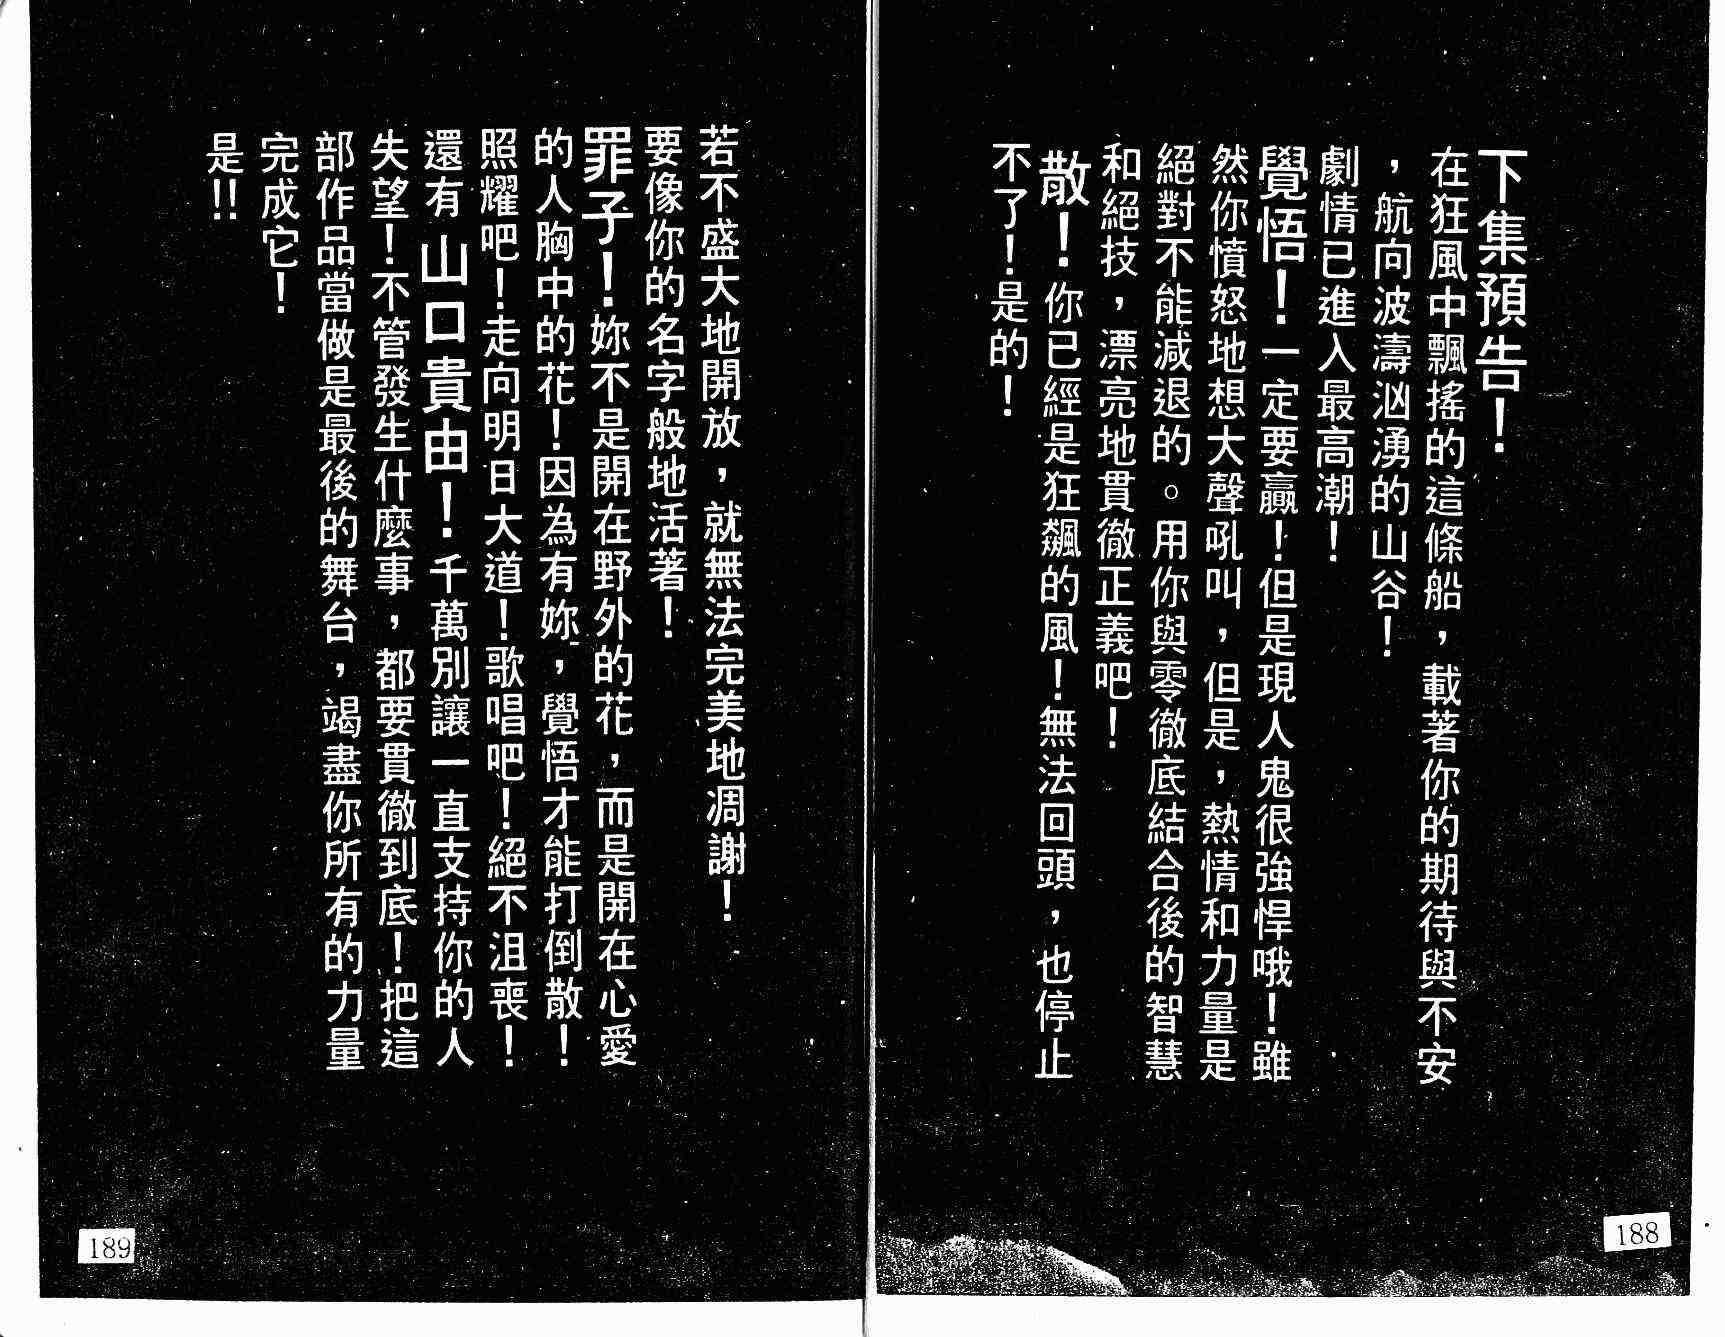 下集預告！
在狂風中飄搖的這條船，載著你的期待與不安
，航向波濤汹湧的山谷！
劇情已進入最高潮！
覺悟！一定要贏！但是現人鬼很強悍哦！雖
然你憤怒地想大聲吼叫，但是，熱情和力量是
絕對不能減退的。用你與零徹底結合後的智慧
和絕技，漂亮地貫徹正義吧！
散！你已經是狂飆的風！無法回頭，也停止
不了！是的！
188
若不盛大地開放，就無法完美地凋謝！
要像你的名字般地活著！
罪子！妳不是開在野外的花，而是開在心愛
的人胸中的花！因為有妳，覺悟才能打倒散！
照耀吧！走向明日大道！歌唱吧！絕不沮喪！
還有山口貴由！千萬別讓一直支持你的人
失望！不管發生什麼事，都要貫徹到底！把這
部作品當做是最後的舞台，竭盡你所有的力量
完成它！
是!!
189